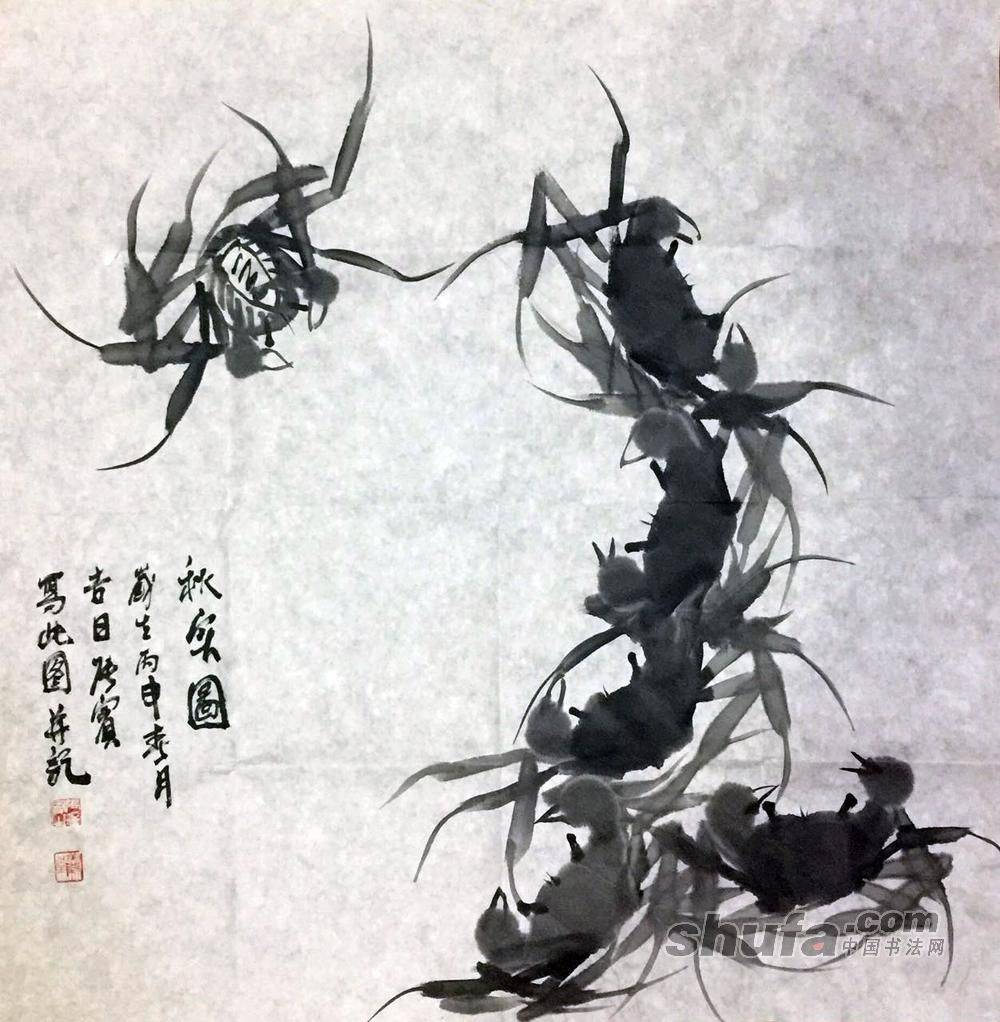 秋实圖
歲在丙申春月
吉日张賓
寫此圖并記
shufa.com
中国书法网